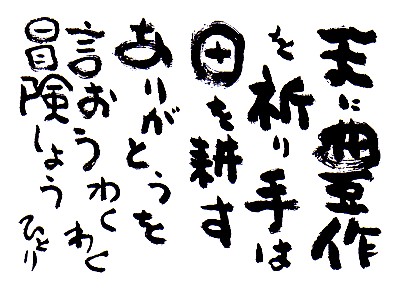 天に豊作
を祈り手は
田を耕す
ありがとうを
言おうわくわく
冒険しょう
ひとり